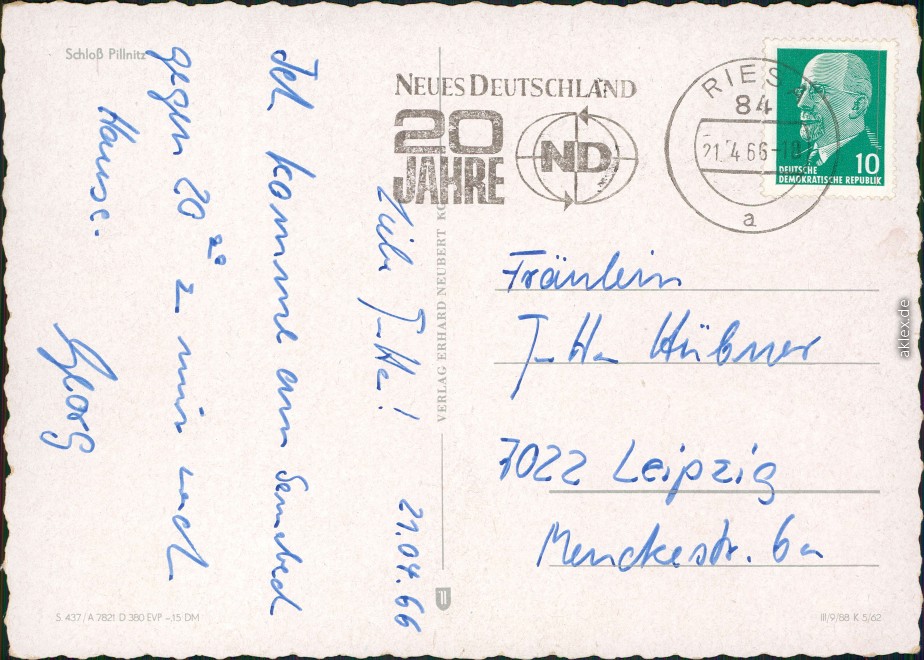 Schloß Pillnitz
NEUES DEUTSCHLAND
20
JAHRE
ND
RIESA
84
21.4.66-18
a
10
DEUTSCHE
DEMOKRATISCHE REPUBLIK
21.04.66
Liebe Jutta!
Ich komme am Sonnabend
gegen 20²⁰ zu mir nach
Hause.
Georg
VERLAG ERHARD NEUBERT
Fräulein
Jutta Hübner
7022 Leipzig
Menckestr. 6a
S. 437/A 7821 D 380 EVP -,15 DM
III/9/88 K 5/62
aklex.de